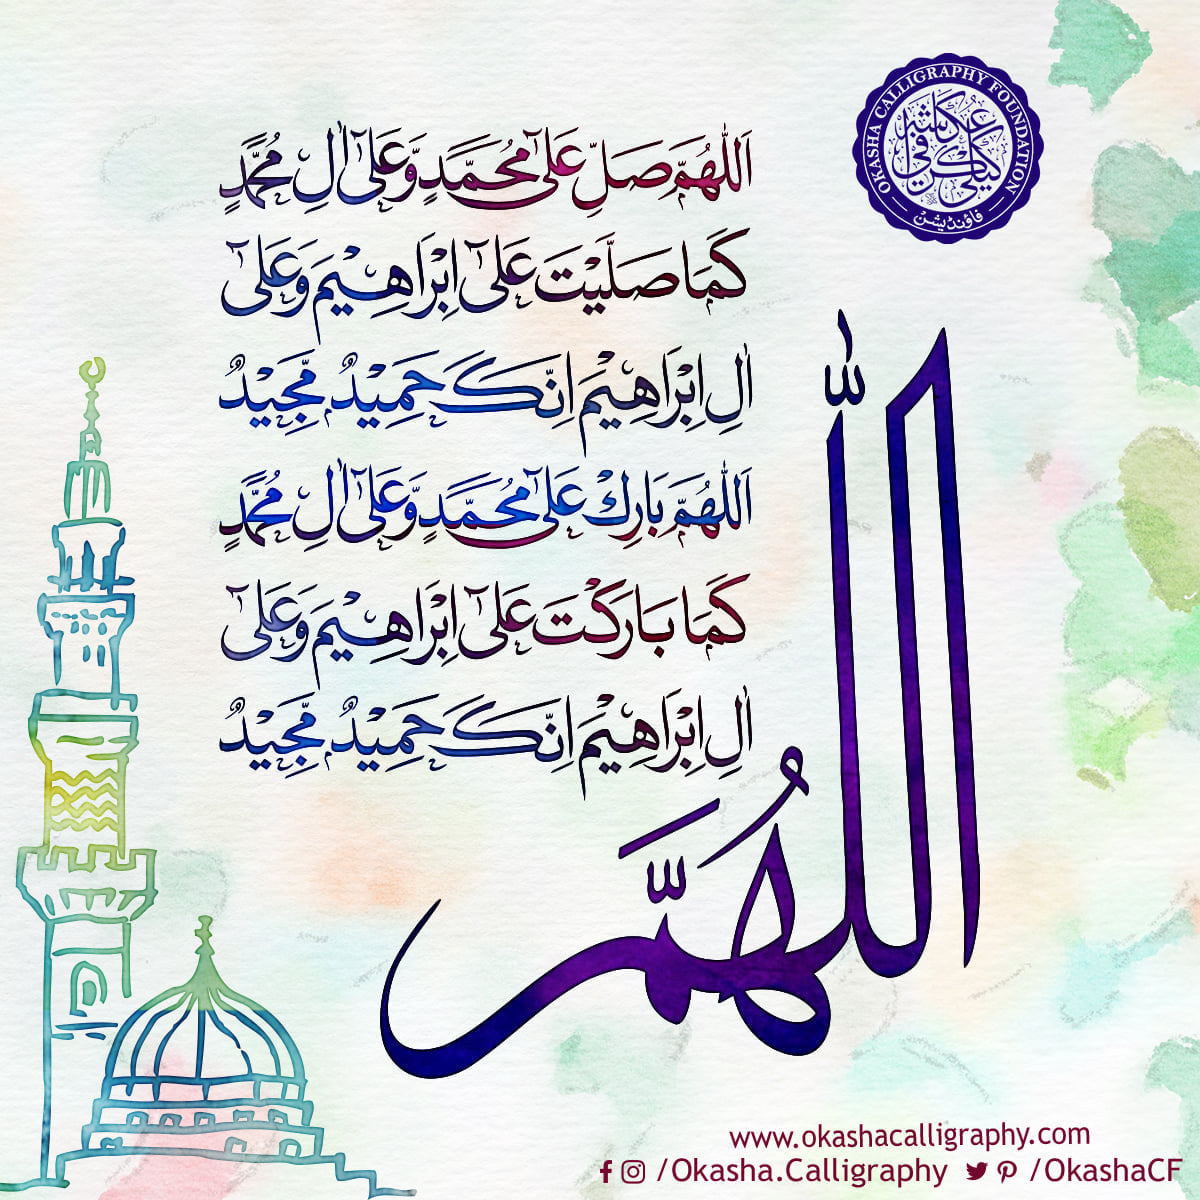 OKASHA CALLIGRAPHY FOUNDATION
عکاشہ کیلی گرافی
فاؤنڈیشن
اَللّٰهُمَّ صَلِّ عَلٰٓى مُحَمَّدٍ وَّعَلٰٓى اٰلِ مُحَمَّدٍ
كَمَا صَلَّيْتَ عَلٰٓى اِبْرَاهِيْمَ وَعَلٰٓى
اٰلِ اِبْرَاهِيْمَ اِنَّكَ حَمِيْدٌ مَّجِيْدٌ
اَللّٰهُمَّ بَارِكْ عَلٰٓى مُحَمَّدٍ وَّعَلٰٓى اٰلِ مُحَمَّدٍ
كَمَا بَارَكْتَ عَلٰٓى اِبْرَاهِيْمَ وَعَلٰٓى
اٰلِ اِبْرَاهِيْمَ اِنَّكَ حَمِيْدٌ مَّجِيْدٌ
اللّٰهُمَّ
www.okashacalligraphy.com
/Okasha.Calligraphy /OkashaCF